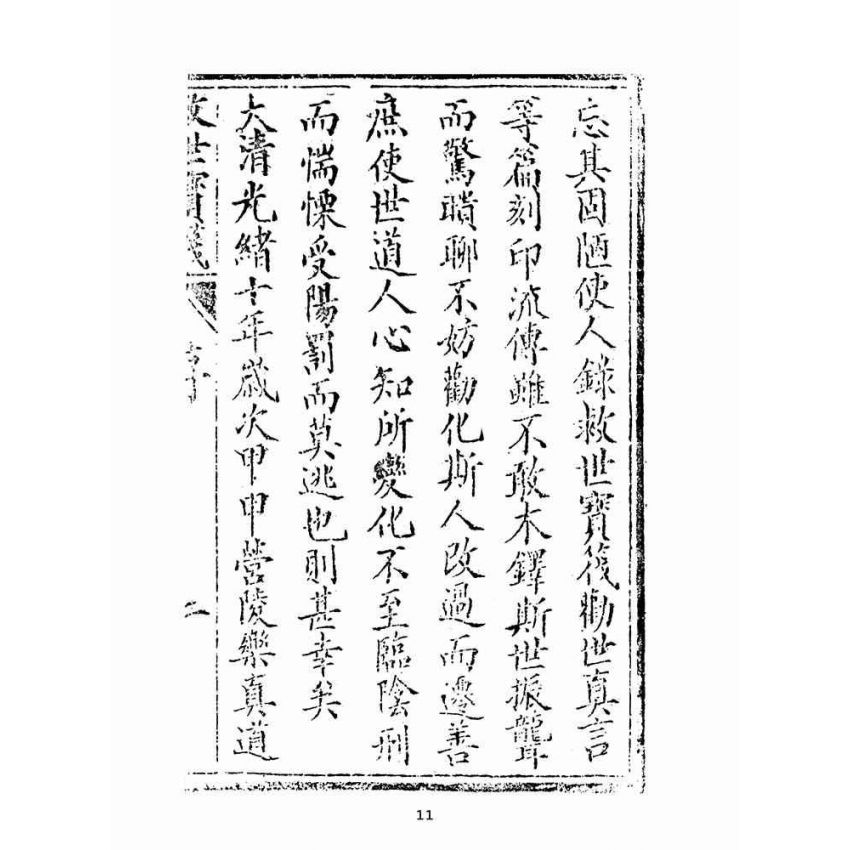 忘其固陋使人錄救世寶筏勸世真言
等篇刻印流傳雖不敢木鐸斯世振聾
而驚聵聊不妨勸化斯人改過而遷善
庶使世道人心知所變化不至臨陰刑
而惴慄受陽罰而莫逃也則甚幸矣
大清光緒十年歲次甲申營陵樂真道
救世寶筏
二
11